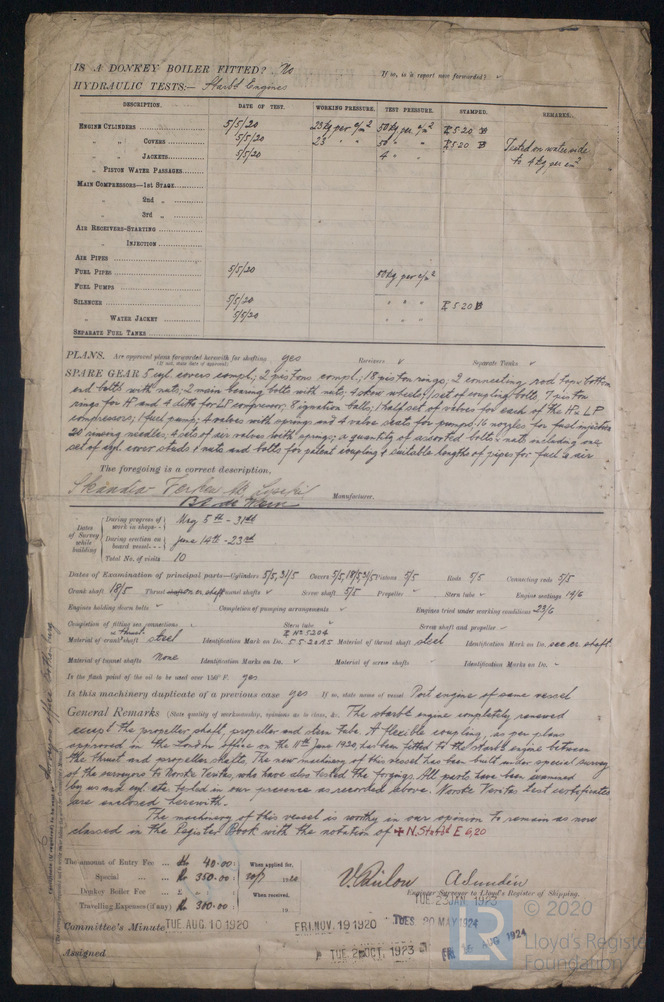 IS A DONKEY BOILER FITTED? No If so, is a report now forwarded? ✓
HYDRAULIC TESTS:— Starbd Engines
DESCRIPTION. DATE OF TEST. WORKING PRESSURE. TEST PRESSURE. STAMPED. REMARKS.
ENGINE CYLINDERS 5/5/20 23 kg per c/m² 50 kg per c/m² 5 20
" " COVERS 5/5/20 23 " " 50 " " 5 20 Tested on water side
" JACKETS 5/5/20 4 " to 4 kg per cm²
" PISTON WATER PASSAGES
MAIN COMPRESSORS—1st STAGE
" 2nd "
" 3rd "
AIR RECEIVERS—STARTING
" INJECTION
AIR PIPES
FUEL PIPES 5/5/20 50 kg per c/m²
FUEL PUMPS
SILENCER 5/5/20 " " " 5 20
" WATER JACKET 5/5/20 " " "
SEPARATE FUEL TANKS
PLANS. Are approved plans forwarded herewith for shafting yes Receivers ✓ Separate Tanks ✓
(If not, state date of approval)
SPARE GEAR 5 cyl covers compl; 2 pistons compl; 18 piston rings; 2 connecting rod top & bottom
end bolts with nuts; 2 main bearing bolts with nuts; 4 skew wheels; 1 set of coupling bolts; 7 piston
rings for HP and 4 ditto for LP compressor; 8 ignition balls; 1 half set of valves for each of the HP & LP
compressors; 1 fuel pump; 4 valves with springs and 4 valve seats for pumps; 16 nozzles for fuel injection
20 needles; 4 sets of air valves with springs; a quantity of assorted bolts & nuts including one
set of cyl. cover studs & nuts and bolts for patent coupling & suitable lengths of pipes for fuel & air
The foregoing is a correct description.
Manufacturer.
Dates of Survey while building
During progress of work in shops-- May 5th - 31st
During erection on board vessel--- June 14th - 23rd
Total No. of visits 10
Dates of Examination of principal parts—Cylinders 5/5, 31/5 Covers 5/5, 18/5, 31/5 Pistons 5/5 Rods 5/5 Connecting rods 5/5
Crank shaft 18/5 Thrust shaft ✓ Screw shaft 5/5 Propeller ✓ Stern tube ✓ Engine seatings 14/6
Engines holding down bolts ✓ Completion of pumping arrangements ✓ Engines tried under working conditions 23/6
Completion of fitting sea connections Stern tube ✓ Screw shaft and propeller ✓
Material of crank shaft & thrust steel Identification Mark on Do. No 5204 5.5.20 A.S Material of thrust shaft steel Identification Mark on Do. see cr shaft
Material of tunnel shafts none Identification Marks on Do. ✓ Material of screw shafts - Identification Marks on Do. -
Is the flash point of the oil to be used over 150° F. yes
Is this machinery duplicate of a previous case yes If so, state name of vessel Port engine of same vessel
General Remarks (State quality of workmanship, opinions as to class, &c. The starbd engine completely renewed
except the propeller shaft, propeller and stern tube. A flexible coupling, as per plans
approved in the London office on the 11th June 1920, has been fitted to the starbd engine between
the thrust and propeller shafts. The new machinery of this vessel has been built under special survey
of the surveyors to Norske Veritas, who have also tested the forgings. All parts have been examined
by us and cyl. etc tested in our presence as recorded above. Norske Veritas test certificates
are enclosed herewith.
The machinery of this vessel is worthy in our opinion to remain as now
classed in the Register Book with the notation of ✠ N. Starbd E 6,20
The amount of Entry Fee ... Kr 40.00 : When applied for,
Special ... Kr 350.00 : 1920
Donkey Boiler Fee ... £ : : When received,
Travelling Expenses (if any) Kr 300.00 : 19
Engineer Surveyor to Lloyd's Register of Shipping.
TUE. 23 JAN. 1923
Committee's Minute TUE. AUG. 10 1920 FRI. NOV. 19 1920 TUES. 20 MAY 1924
Assigned TUE. 2 OCT. 1923 FRI. AUG 1924
LR
© 2020
Lloyd's Register
Foundation